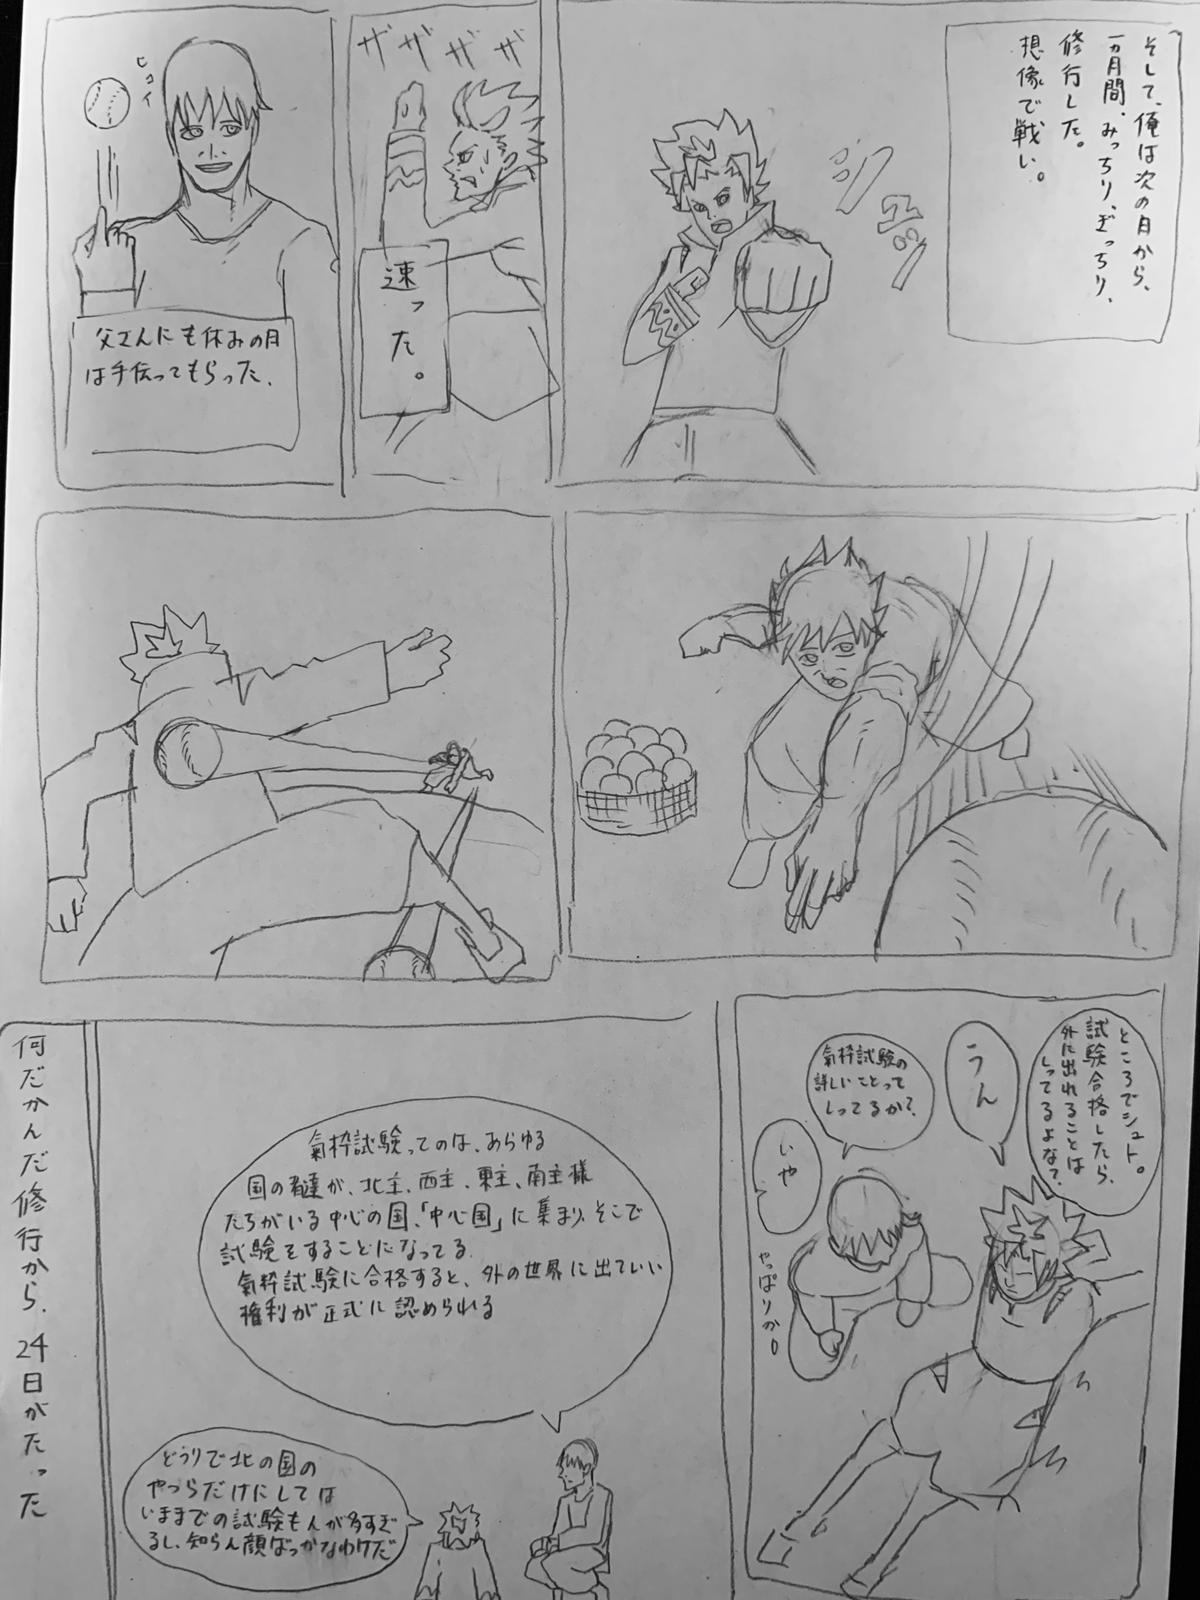 そして、俺は次の月から、
一ヵ月間、みっちり、ぎっちり、
修行した。
想像で戦い。
シュッ
ザザザザ
速った。
ヒョイ
父さんにも休みの月
は手伝ってもらった。
ところでシュト。
試験合格したら、
外に出れることは
しってるよな?
うん
氣枠試験の
詳しいことって
しってるか?
いや
やっぱりか。
氣枠試験ってのは、あらゆる
国の者達が、北主、西主、東主、南主様
たちがいる中心の国、「中心国」に集まり、そこで
試験をすることになってる。
氣枠試験に合格すると、外の世界に出ていい
権利が正式に認められる
どうりで北の国の
やつらだけにしては
いままでの試験も人が多すぎ
るし、知らん顔ばっかなわけだ
何だかんだ修行から、24日がたった